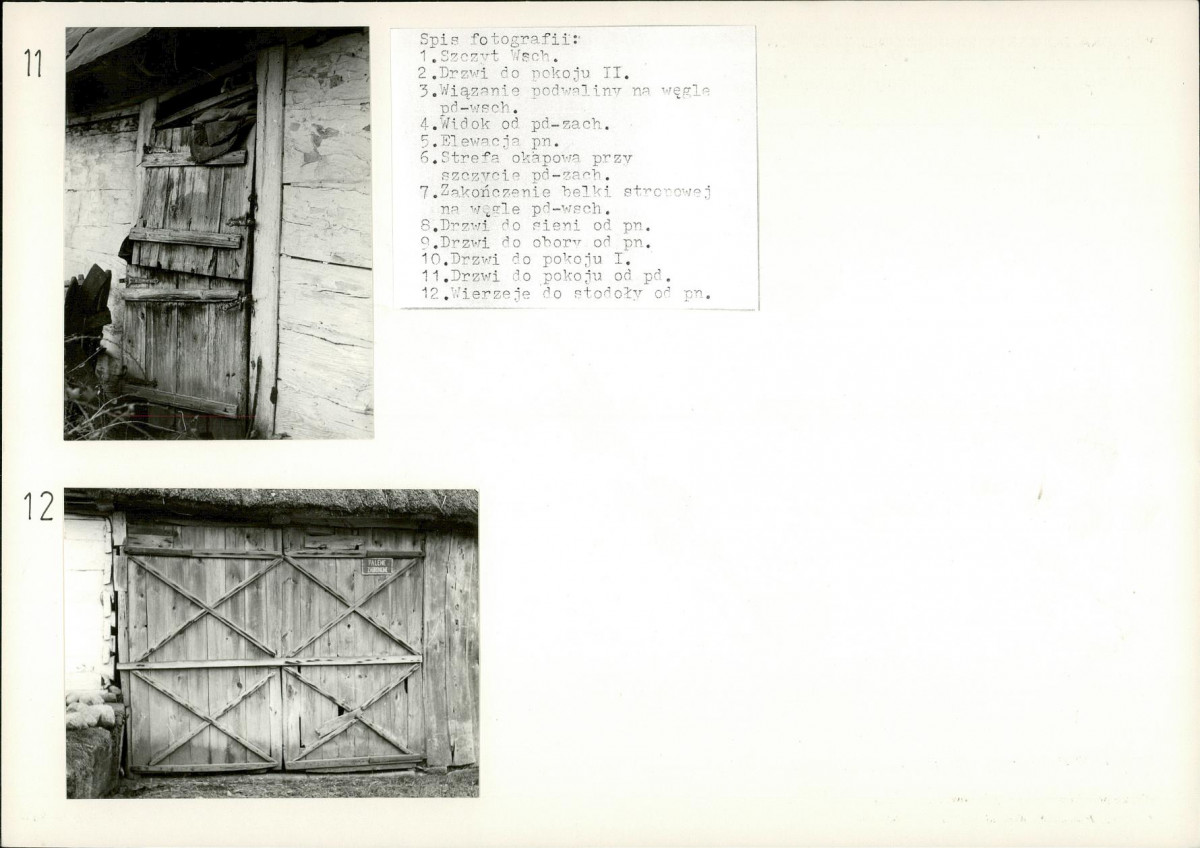 11
Spis fotografii:
1.Szczyt Wsch.
2.Drzwi do pokoju II.
3.Wiązanie podwaliny na węgle
pd-wsch.
4.Widok od pd-zach.
5.Elewacja pn.
6.Strefa okapowa przy
szczycie pd-zach.
7.Zakończenie belki stropowej
na węgle pd-wsch.
8.Drzwi do sieni od pn.
9.Drzwi do obory od pn.
10.Drzwi do pokoju I.
11.Drzwi do pokoju od pd.
12.Wierzeje do stodoły od pn.
12
PALENIE
ZABRONIONE